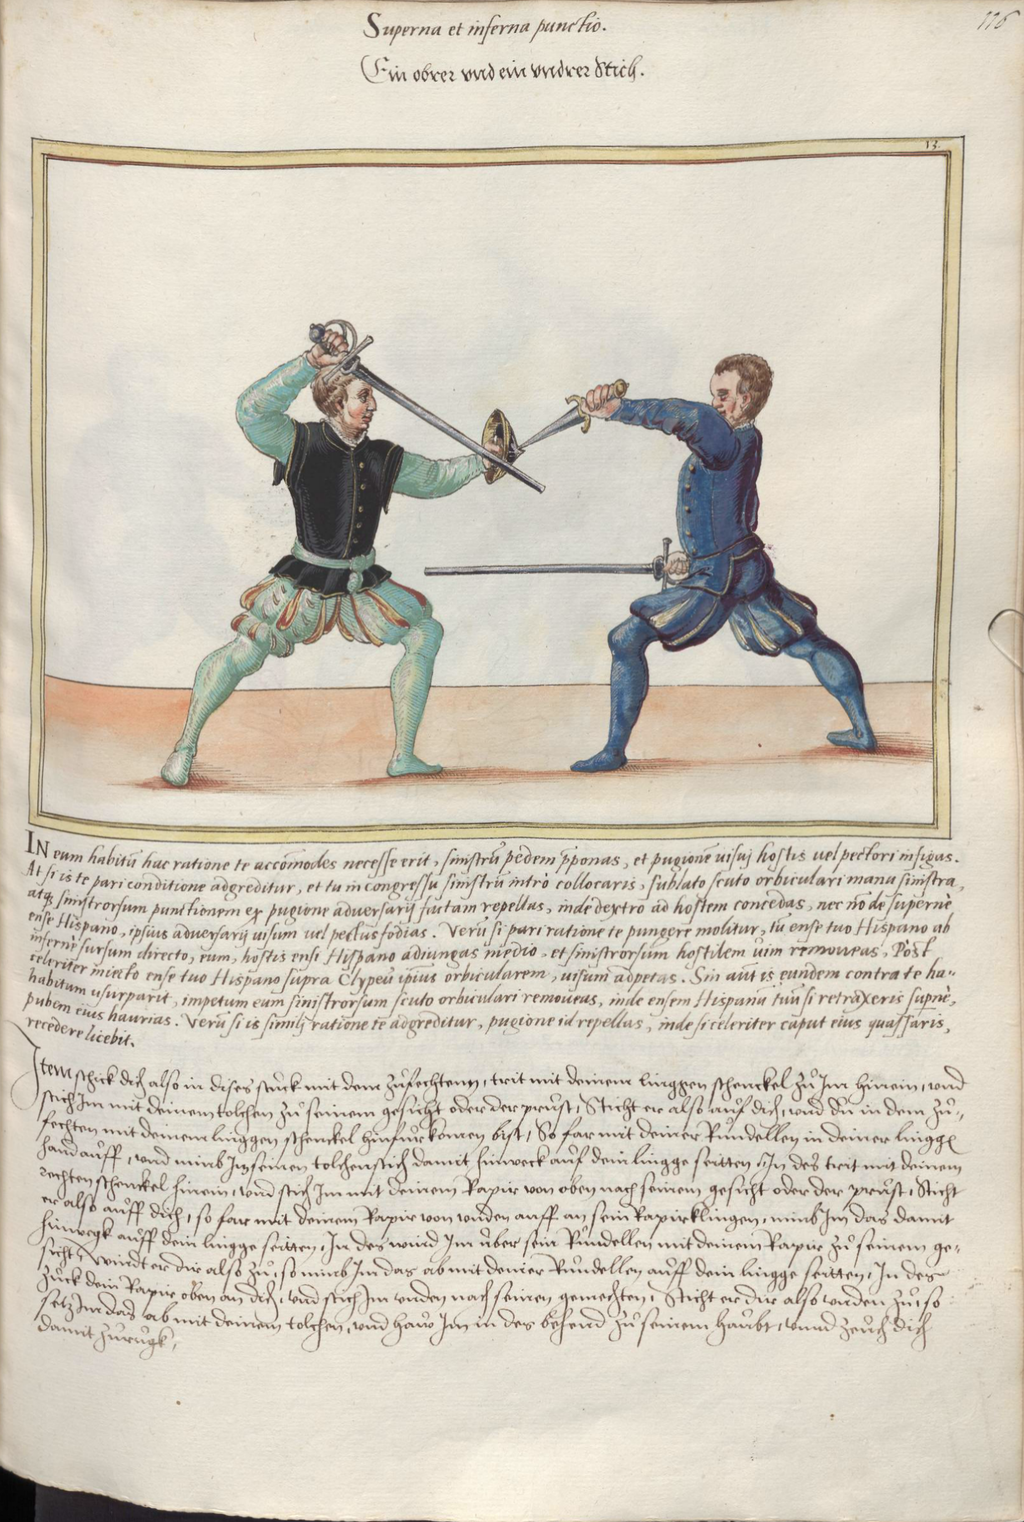 116
Superna et inferna punctio.
Ein obrer vnd ein vndrer Stich.
13.
IN eum habitũ hac ratione te accõmodes necesse erit, sinistrũ pedem p̃ponas, et pugionẽ uisuj hostis uel pectori infigas.
At si is te pari conditione adgreditur, et tu in congressu sinistrũ intrò collocaris, sublato scuto orbiculari manu sinistra,
atq̃ sinistrorsum punctionem ex pugione adversarij factam repellas, inde dextro ad hostem concedas, nec nõ de supernè
ense Hispano, ipsius adversarij uisum uel pectus fodias. Verũ si pari ratione te pungere molitur, tũ ense tuo Hispano ab
infernè sursum directo, eum, hostis ensi Hispano adiungas medio, et sinistrorsum hostilem uim remoueas, Post
celeriter iniecto ense tuo Hispano supra Clypeũ ipsius orbicularem, uisum adpetas. Sin aũt is eundem contra te ha-
habitum usurparit, impetum eum sinistrorsum scuto orbiculari remoueas, inde ensem Hispanũ tuũ si retraxeris supnè,
pubem eius haurias. Verũ si is similj ratione te adgreditur, pugione id repellas, inde si celeriter caput eius quassaris,
recedere licebit.
Item schick dich also in dises stuck mit dem zůfechtenn, trit mit deinem linggen schenckel zů Im hinein, vnnd
stich Im mit deinem tolchen zů seinem gesicht oder der prust, Sticht er also auf dich, vnnd du in dem zů-
fechten mit deinem linggen schenckel hinfur komen bist, So far mit deiner Rundellen in deiner lingg
hand auff, vnnd nimb Im seinen tolchenstich damit hinweck auf dein lingge seitten, In des trit mit deinem
rechten schenckel hinein, vnnd stich Im mit deinem Rapir von oben nach seinem gesicht oder der prust, Sticht
er also auff dich, so far mit deinem Rapir von vnden auff an sein Rapirklingen, nimb Im das damit
hinwegk auff dein lingge seitten, In des wind Im vber sein Rundellen mit deinem Rapir zů seinem ge-
sicht, windt er dir also zů, so nimb Im das ab mit deiner Rundellen auff dein lingge seitten, In des
zuck dein Rapir oben an dich, vnd stich Im vnden nach seinen gemechten, Sticht er dir also vnden zů, so
setz Im das ab mit deinem tolchen, vnnd haw Im in des behend zů seinem haubt, vnnd zeuch dich
damit zurugk,